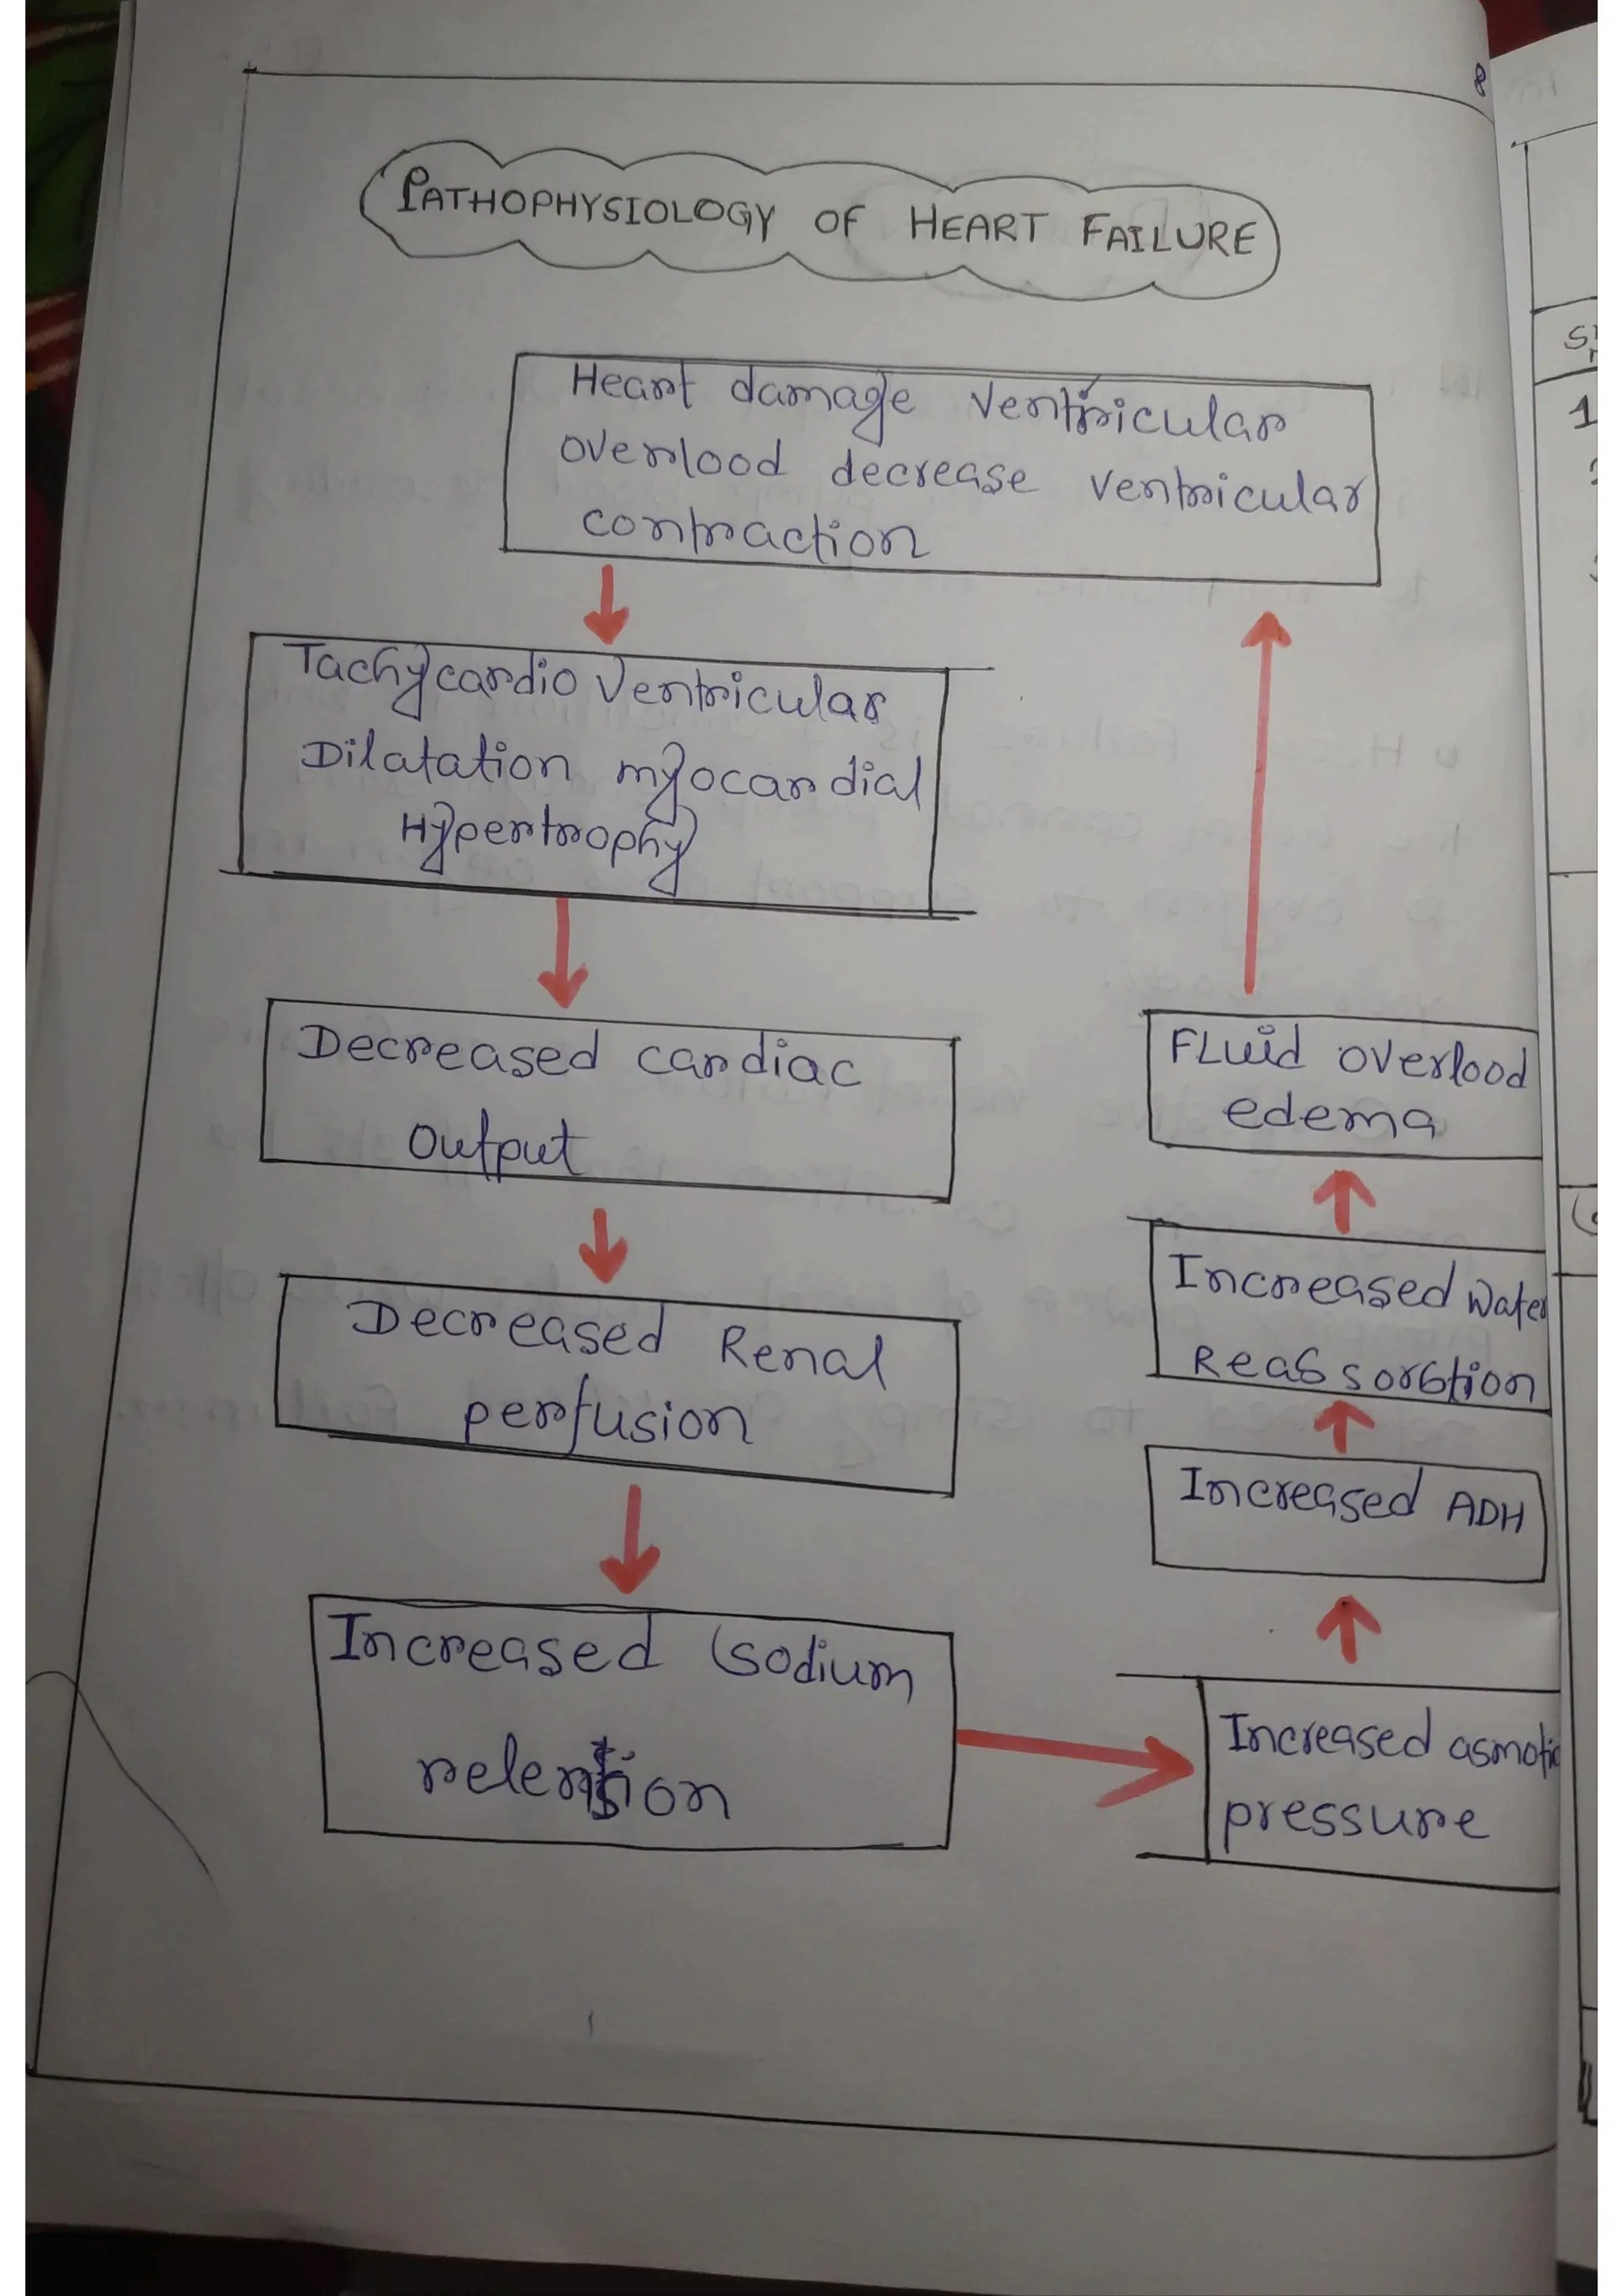 8
PATHOPHYSIOLOGY OF HEART FAILURE
Heart damage Ventricular
overlood decrease ventricular
contraction
Tachycardio Ventricular
Dilatation myocardial
Hypertrophy
Decreased cardiac
output
Decreased Renal
perfusion
Increased sodium
relention
Increased asmotic
pressure
Increased ADH
Increased water
Reabsorbtion
FLuid overlood
edema